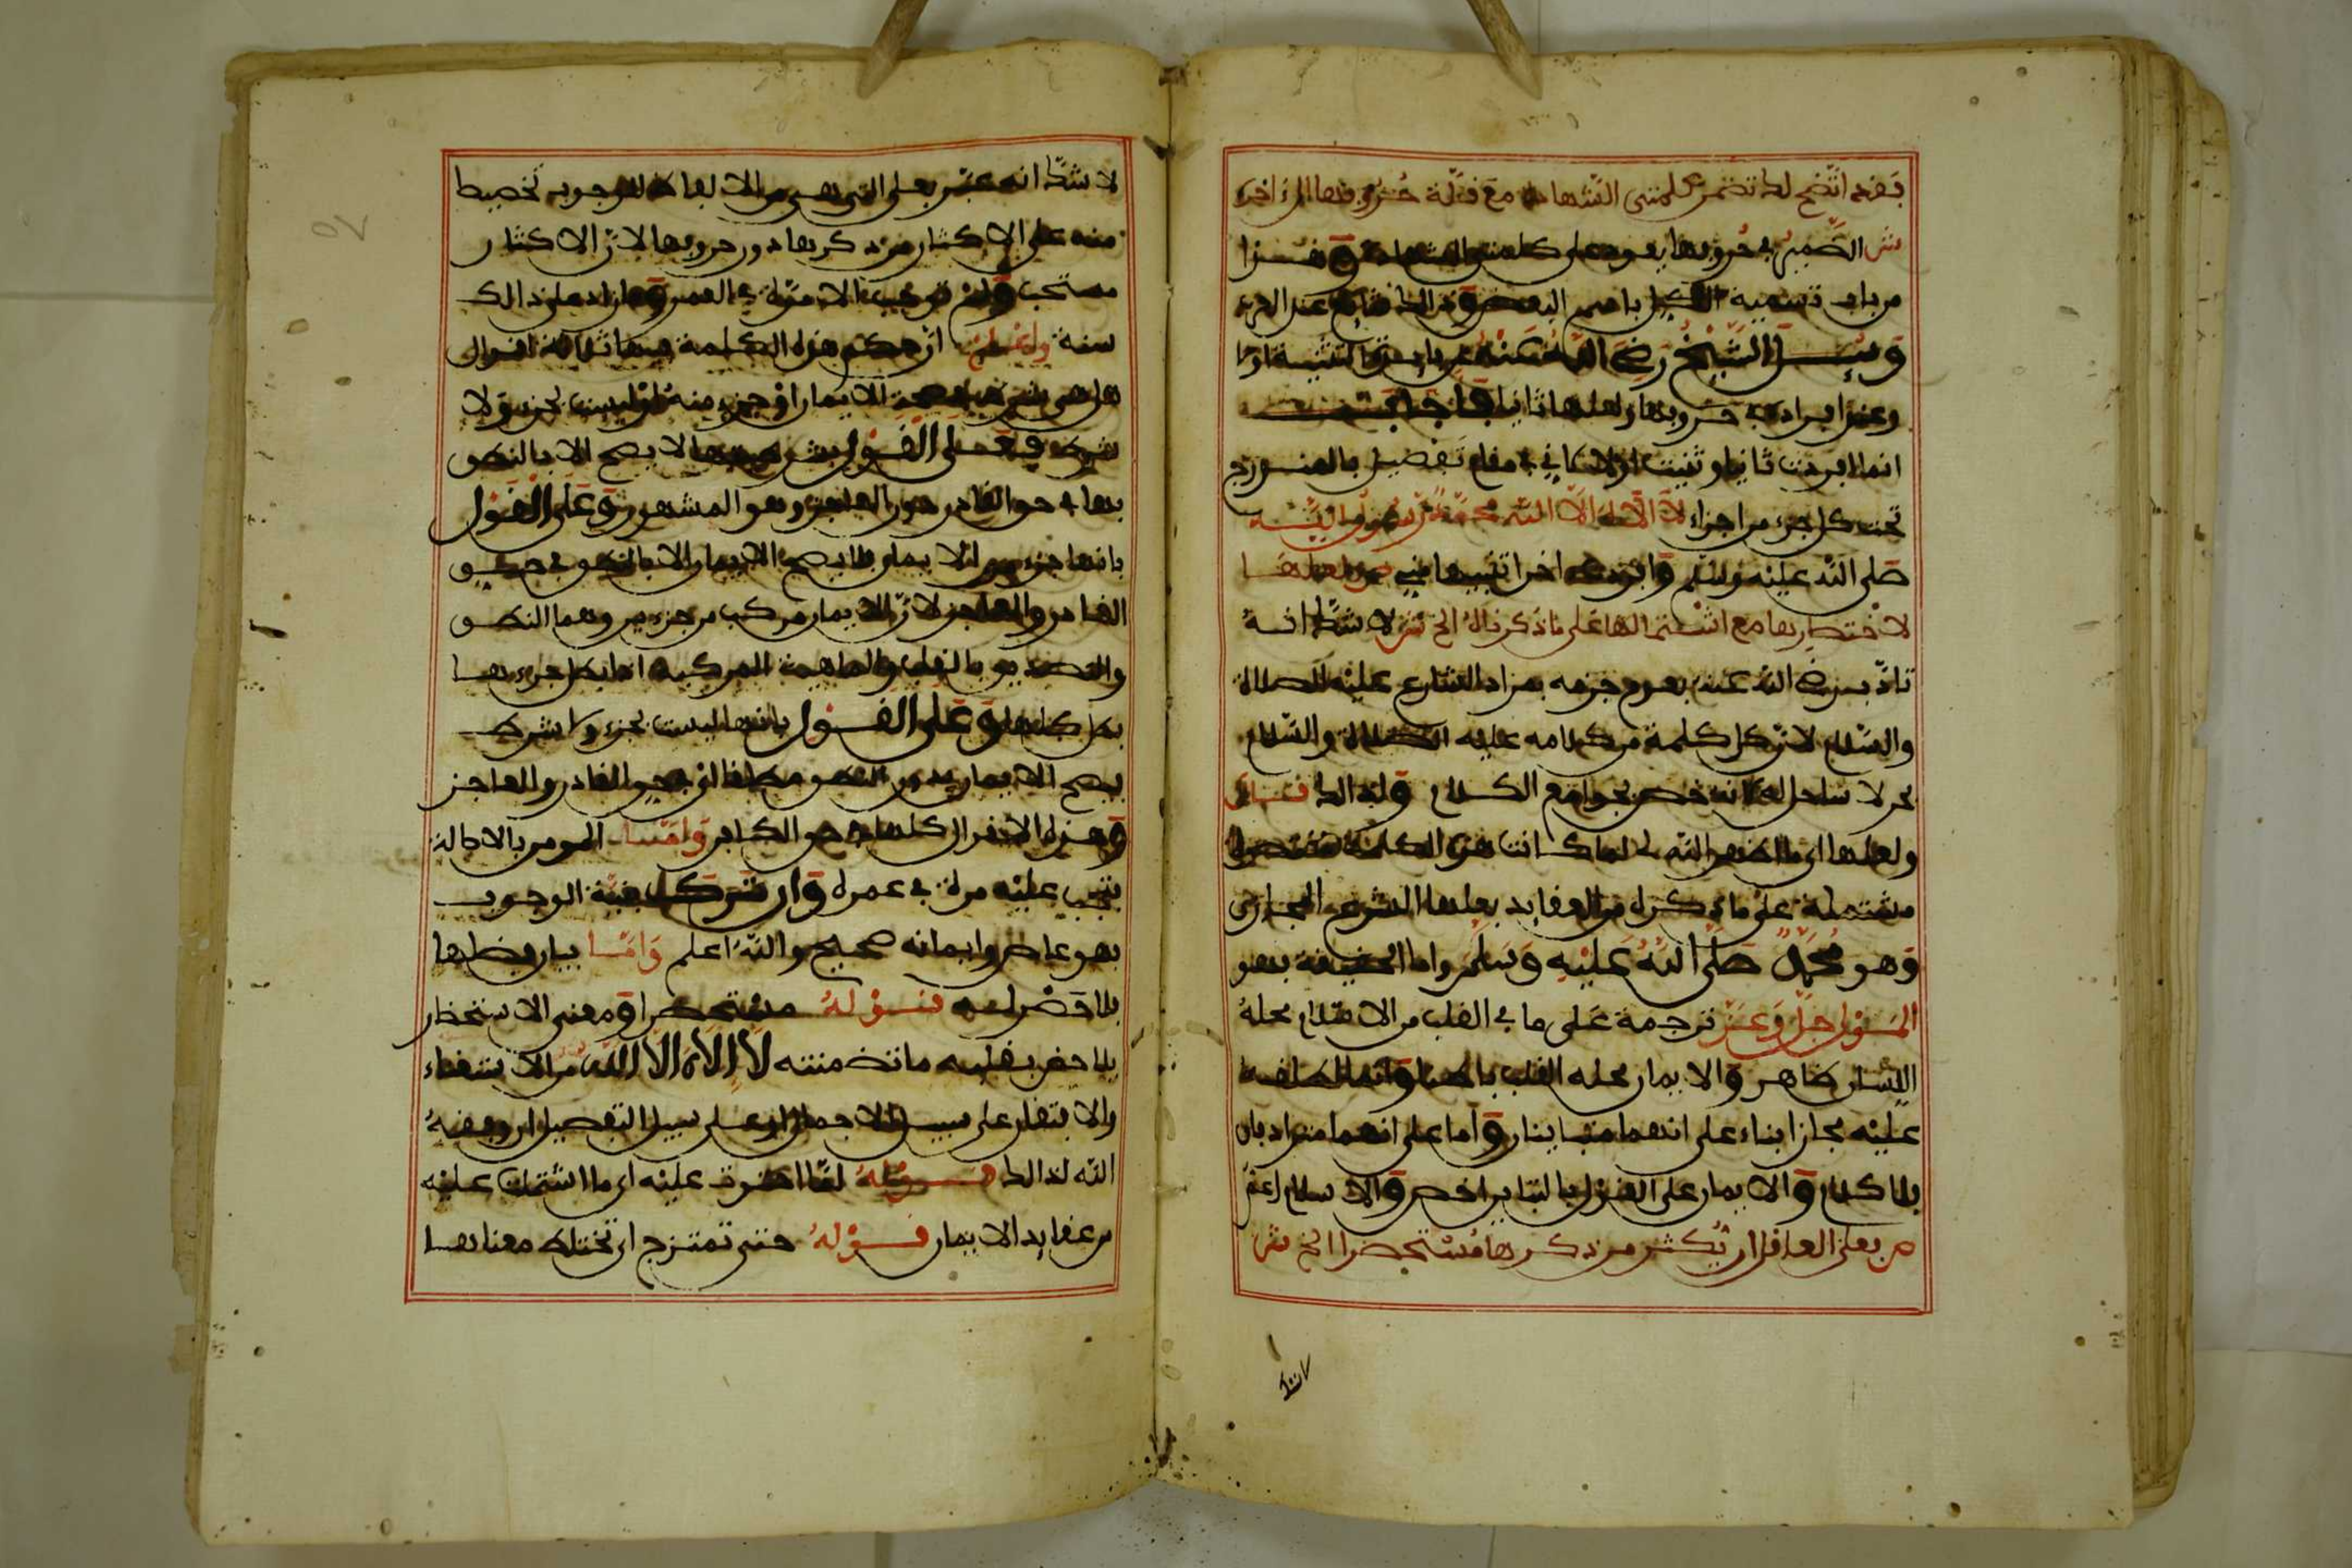 فقد اتضح لك تضمن كلمتي الشهادة مع قلة حروفها الى اخره
ش الضمير في حروفها يعود على كلمتي الشهادة
من باب تسمية الكل باسم البعض وذلك شايع عند العرب
وسئل الشيخ رضي الله عنه
وعن افراد في حروفها ولعلها ثانيا فاجاب
انما افردت ثانيا وثنيت اولا لاني في مقام تفصيل
تحت كل جزء من اجزاء لا اله الا الله محمد رسول الله
صلى الله عليه وسلم وافردت اخرا تنبيها ص ولعلها
لاختصارها مع اشتمالها على ما ذكرناه الخ ش لا شك انه
تادب رضي الله عنه بعدم جزمه بمراد الشارع عليه الصلاة
والسلام لان كل كلمة من كلامه عليه الصلاة والسلام
بحر لا ساحل له لانه خص بجوامع الكلام ولذلك قال
ولعلها لما كانت هذه الكلمة مختصرة
مشتملة على ما ذكره من العقايد جعلها الشرع
وهو محمد صلى الله عليه وسلم واما الحقيقة فهو
المولى جل وعز ترجمة على ما في القلب من الاسلام محله
اللسان ظاهر والايمان محله القلب
عليه مجازا بناء على انهما متباينان واما على انهما مترادفان
فلا كلام والايمان على القول بالتباين اخص والاسلام اعم
ص فعلى العاقل ان يكثر من ذكرها مستحضرا الخ ش
لا شك
لا شك انه عبر بعلى التي هي من الالفاظ للوجوب تحضيضا
منه على الاكثار من ذكرها دون حروفها لان الاكثار
مستحب ولم تجب الا مرة في العمر وما زاد على ذلك
سنة واعلم ان حكم هذه الكلمة فيها ثلاثة اقوال
هل هي شرط في صحة الايمان او جزء منه او ليست بجزء ولا
شرط فعلى القول بشرطيتها لا يصح الا بالنطق
بها في حق القادر دون العاجز وهو المشهور وعلى القول
بانها جزء من الايمان فلا يصح الايمان الا بالنطق في حق
القادر والعاجز لان الايمان مركب من جزءين وهما النطق
والتصديق بالقلب والماهية المركبة اذا بطل جزءها
بطل كلها وعلى القول بانها ليست بجزء ولا شرط
يصح الايمان بدون النطق مطلقا في حق القادر والعاجز
وهذه الاقوال كلها في حق الكافر واما المومن بالاصالة
فتجب عليه مرة في عمره وان ترك نية الوجوب
فهو عاص وايمانه صحيح والله اعلم واما بيان فضلها
قوله مستحضرا ومعنى الاستحضار
بقلبه ما تضمنته لا اله الا الله من الاستغناء
والافتقار على سبيل الاجمال او على سبيل التفصيل ان وفقه
الله لذلك قوله لما احتوت عليه اي ما اشتملت عليه
من عقايد الايمان قوله حتى تمتزج اي تختلط معناها